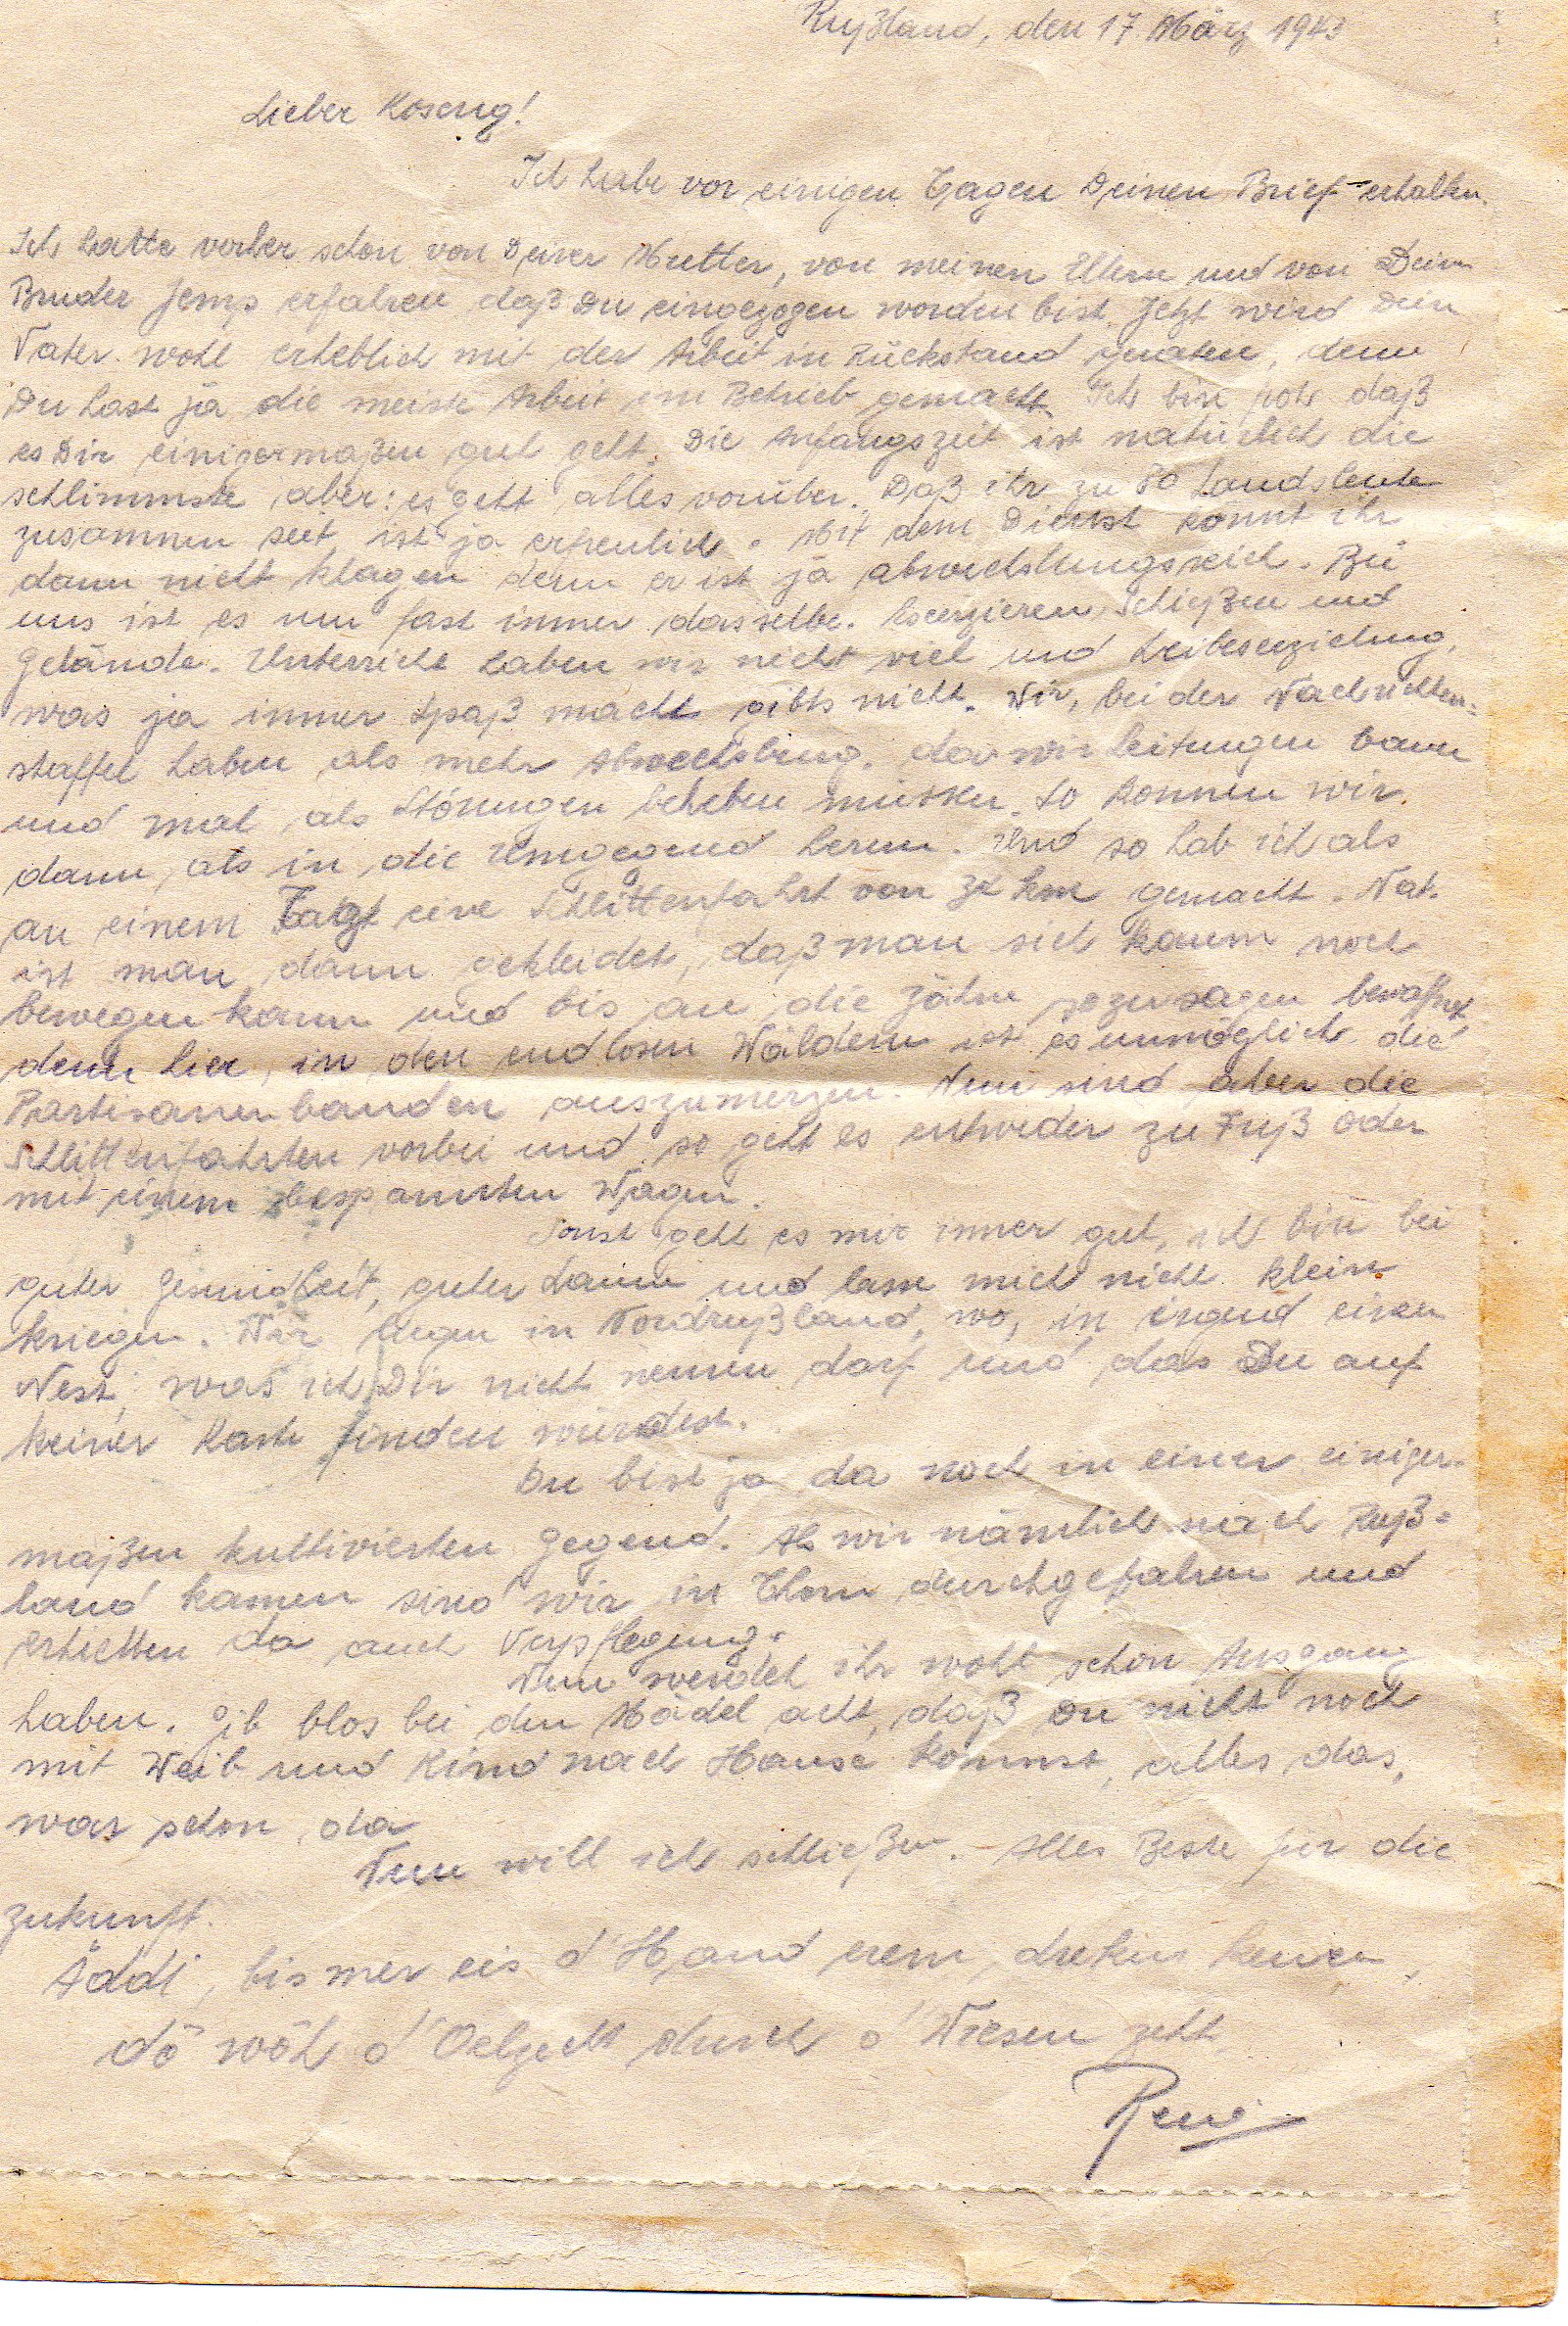 Rußland, den 17. März 1943
Lieber Koseng!
Ich habe vor einigen Tagen Deinen Brief erhalten.
Ich hatte vorher schon von Deiner Mutter, von meinen Eltern und von Deim
Bruder Jemp erfahren daß Du eingezogen worden bist. Jetzt wird Dein
Vater wohl erheblich mit der Arbeit in Rückstand geraten, denn
Du hast ja die meiste Arbeit im Betrieb gemacht. Ich bin froh daß
es Dir einigermaßen gut geht. Die Anfangszeit ist natürlich die
schlimmste aber: es geht alles vorüber. Daß ihr zu 80 Landsleute
zusammen seit ist ja erfreulich. Mit dem Dienst könnt ihr
dann nicht klagen denn er ist ja abwechslungsreich. Bei
uns ist es nun fast immer dasselbe. Exerzieren, Schießen und
Gelände. Unterricht haben wir nicht viel und Leibeserziehung,
was ja immer Spaß macht gibts nicht. Wir, bei der Nachrichten-
staffel haben als mehr Abwechslung, da wir Leitungen bauen
und mal als Störungen beheben müssen. So kommen wir
dann, als in die Umgegend herum. Und so hab ich als
an einem Tag eine Schlittenfahrt von km gemacht. Nat.
ist man dann gekleidet, daß man sich kaum noch
bewegen kann und bis an die Zähne sozusagen bewaffnet
denn hier, in den endlosen Wäldern ist es unmöglich die
Partisanenbanden auszumerzen. Nun sind aber die
Schlittenfahrten vorbei und so geht es entweder zu Fuß oder
mit einem bespannten Wagen.
Sonst geht es mir immer gut, ich bin bei
guter Gesundheit, guter Laune und lasse mich nicht klein
kriegen. Wir liegen in Nordrußland, wo, in irgend einem
Nest, was ich Dir nicht nennen darf und das Du auf
keiner Karte finden würdest.
Du bist ja da noch in einer einiger-
maßen kultivierten Gegend. Als wir nämlich nach Ruß-
land kamen sind wir in Thorn durchgefahren und
erhielten da auch Verpflegung.
Nun werdet ihr wohl schon Ausgang
haben. Gib blos bei den Mädel acht, daß Du nicht noch
mit Weib und Kind nach Hause kommst, alles das,
war schon da
Nun will ich schließen. Alles Beste für die
Zukunft.
Äddi, bis mer eis d'Hand erem drecken kennen,
dö wöh d'Oelzecht durch d'Wiesen zeht.
René